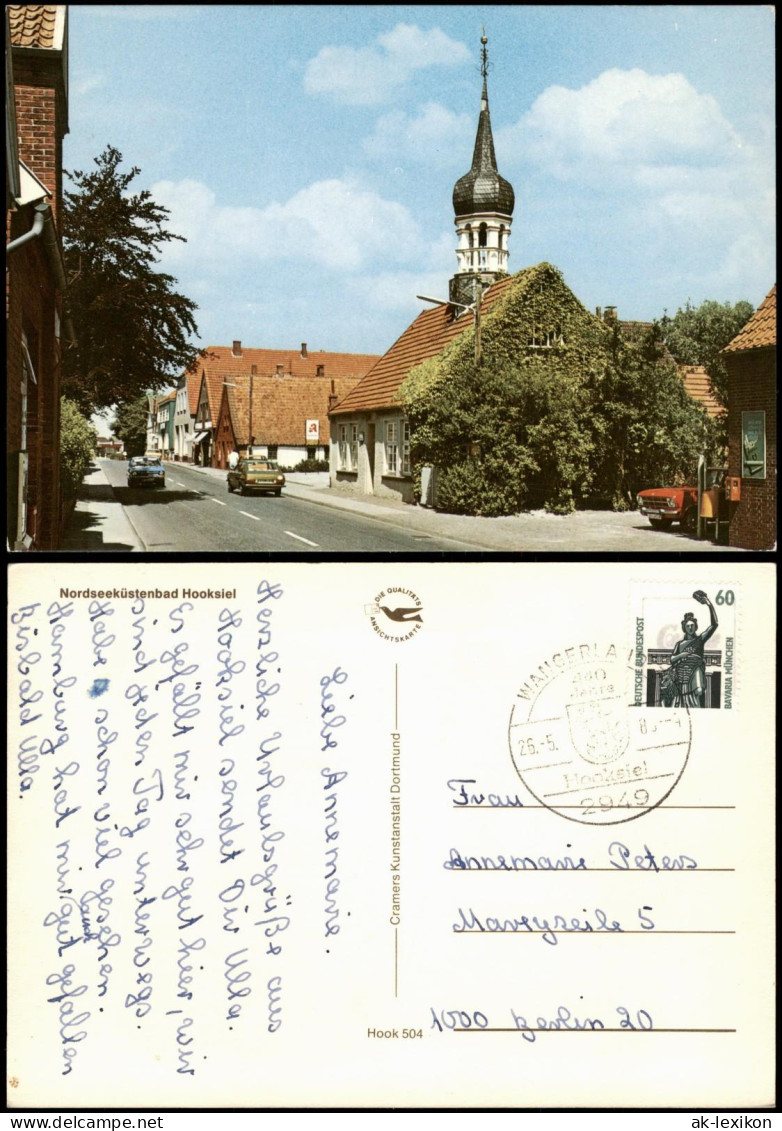 Nordseeküstenbad Hooksiel
DIE QUALITÄTS
ANSICHTSKARTE
Liebe Annemarie.
Herzliche Urlaubsgrüße aus
Hooksiel sendet Dir Ulla.
Es gefällt mir sehr gut hier, wir
sind jeden Tag unterwegs.
Habe schon viel gesehen.
Hamburg hat mir gut gefallen
auch
Bis bald Ulla.
Cramers Kunstanstalt Dortmund
Hook 504
60
DEUTSCHE BUNDESPOST
BAVARIA MÜNCHEN
WANGERLA
440
Jahre
26.-5.
Hooksiel
2949
Frau
Annemarie Peters
5
1000 Berlin 20
ak-lexikon.com